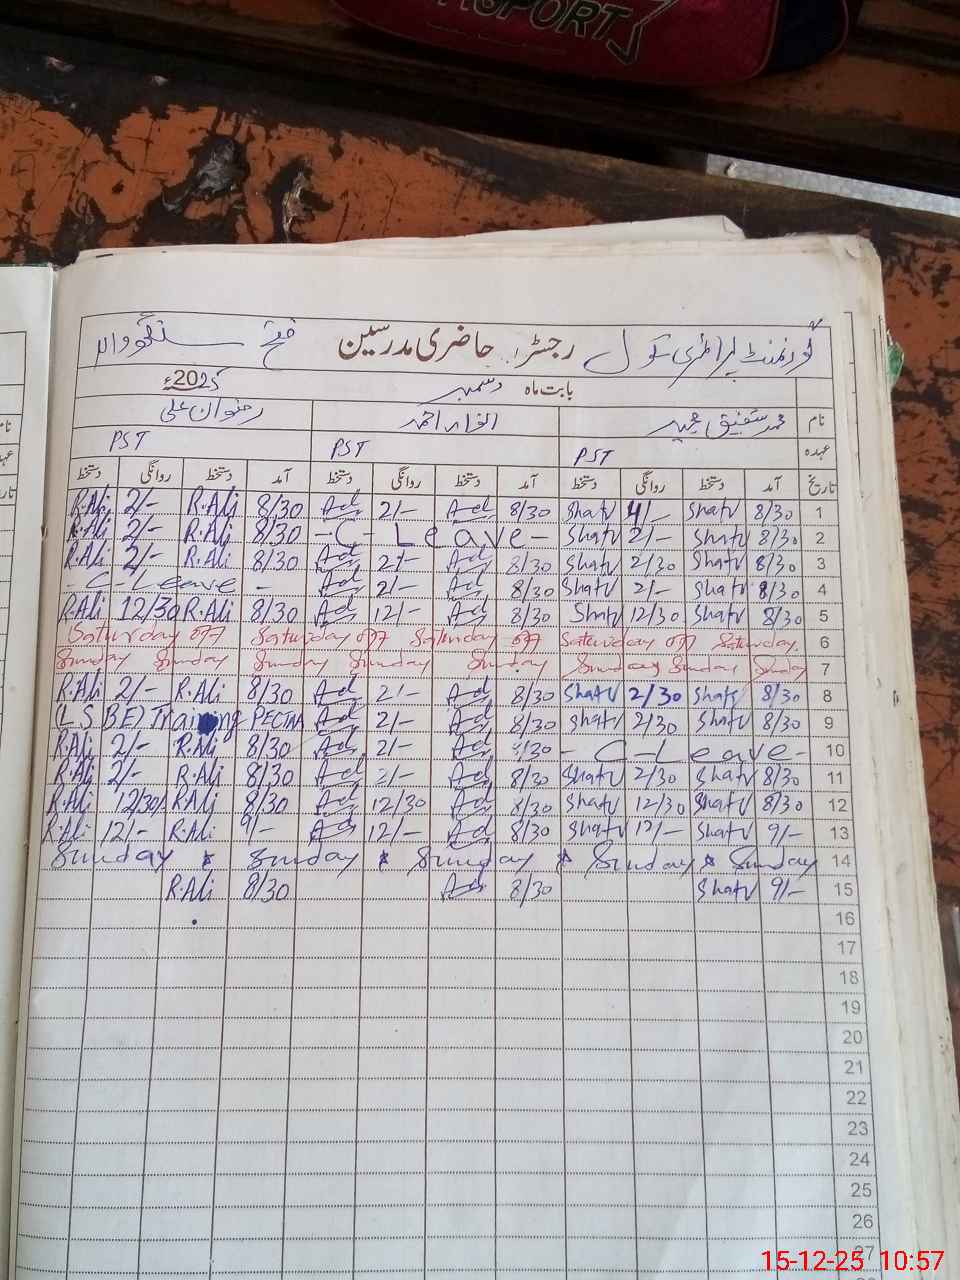 SPORT
گورنمنٹ پرائمری سکول رجسٹر حاضری مدرسین فتح سنگھ والا
بابت ماہ دسمبر 2025ء
نام محمد شفیق مجید الفراحمد رضوان علی
عہدہ PST PST PST
تاریخ آمد دستخط روانگی دستخط آمد دستخط روانگی دستخط آمد دستخط روانگی دستخط
R.Ali 2/- R.Ali 8/30 Ad 2/- Ad 8/30 Shafv 4/- Shafv 8/30 1
R.Ali 2/- R.Ali 8/30 -C-Leave- Shafv 2/- Shafv 8/30 2
R.Ali 2/- R.Ali 8/30 Ad 2/- Ad 8/30 Shafv 2/30 Shafv 8/30 3
-C-Leave- Ad 2/- Ad 8/30 Shafv 2/- Shafv 8/30 4
R.Ali 12/30 R.Ali 8/30 Ad 12/- Ad 8/30 Shafv 12/30 Shafv 8/30 5
Saturday off Saturday off Saturday off Saturday off Saturday 6
Sunday Sunday Sunday Sunday Sunday Sunday Sunday Sunday 7
R.Ali 2/- R.Ali 8/30 Ad 2/- Ad 8/30 Shafv 2/30 Shafv 8/30 8
(LSBE) Training PECTAA Ad 2/- Ad 8/30 Shafv 2/30 Shafv 8/30 9
R.Ali 2/- R.Ali 8/30 Ad 2/- Ad 8/30 -C-Leave- 10
R.Ali 2/- R.Ali 8/30 Ad 2/- Ad 8/30 Shafv 2/30 Shafv 8/30 11
R.Ali 12/30 R.Ali 8/30 Ad 12/30 Ad 8/30 Shafv 12/30 Shafv 8/30 12
R.Ali 12/- R.Ali 9/- Ad 12/- Ad 8/30 Shafv 12/- Shafv 9/- 13
Sunday * Sunday * Sunday * Sunday * Sunday 14
R.Ali 8/30 Ad 8/30 Shafv 9/- 15
16
17
18
19
20
21
22
23
24
25
26
27
15-12-25 10:57